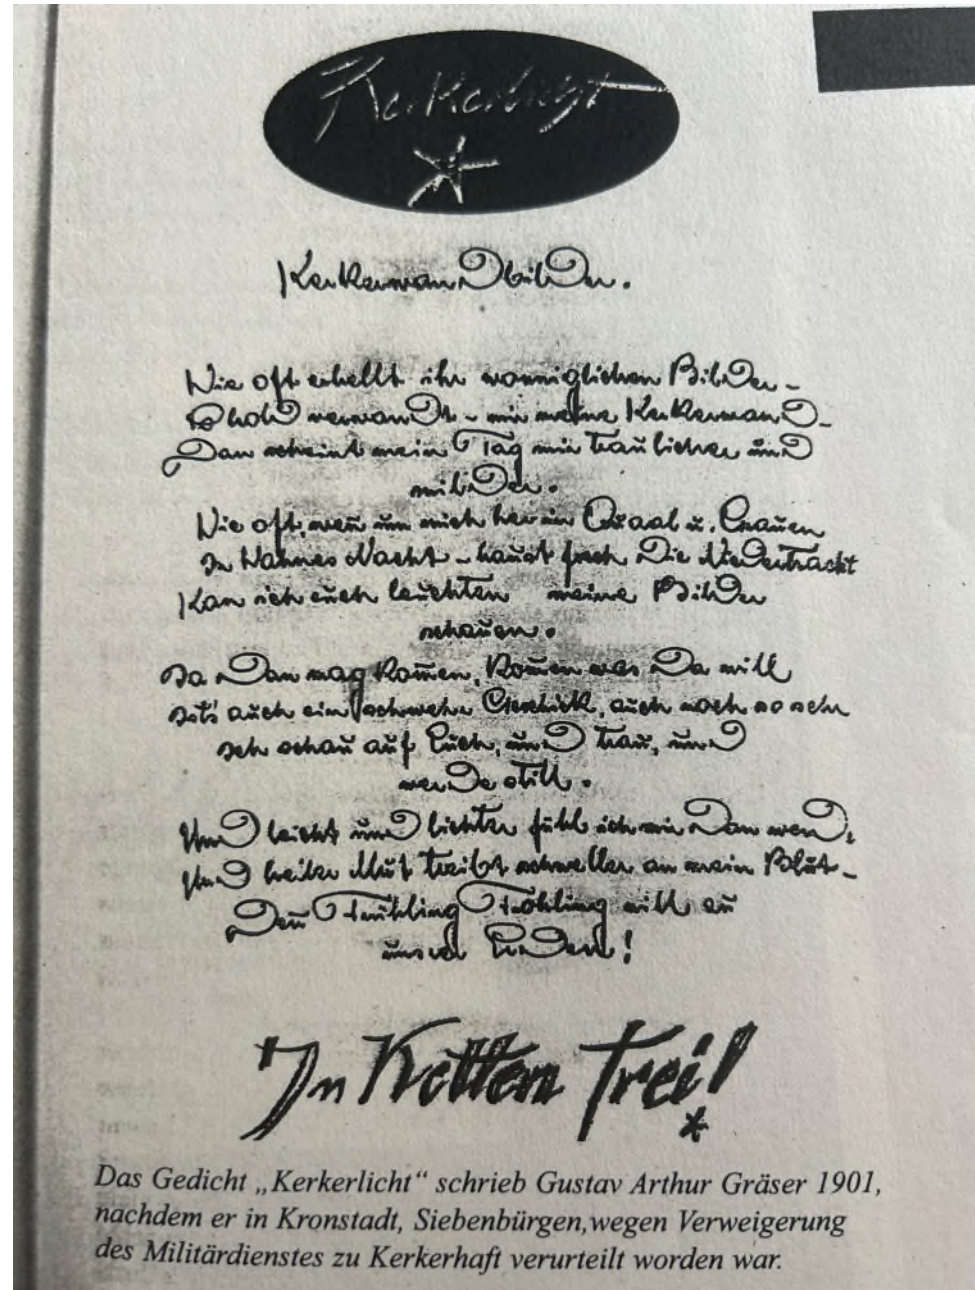 Kerkerlicht
Kerkerwandbilder.
Wie oft erhellt ihr wonniglichen Bilder –
So hold verwandt – mir meine Kerkerwand –
Dan scheint mein Tag mir traulicher und
milder.
Wie oft, weñ um mich her in Quaal u. Grauen
In Wahnes Nacht – haust frech die Niedertracht
Kan ich euch leuchten meine Bilder
schauen.
Ja dan mag kom̃en, kom̃en was da will
Ists auch ein schweres Geschick, auch noch so sehr
Ich schau auf Euch, und trau, und
werde still.
Und leicht und lichter fühl ich mir dan werd,
Und heitrer Mut treibt schneller an mein Blut –
Deñ Frühling Fröhling will au
unsrer Erden!
In Ketten frei!
Das Gedicht „Kerkerlicht“ schrieb Gustav Arthur Gräser 1901,
nachdem er in Kronstadt, Siebenbürgen,wegen Verweigerung
des Militärdienstes zu Kerkerhaft verurteilt worden war.